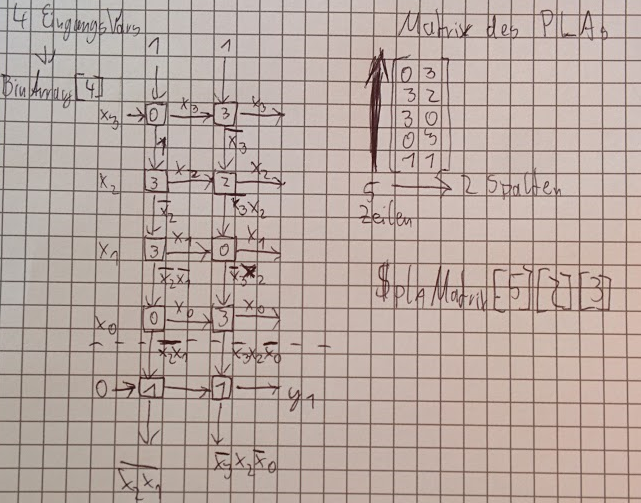 4 EingangsVars
Matrix des PLAs
1 1
BinArray[4]
x₃ 0 x₃ 3 x₃
1 x̅₃
x₂ 3 x₂ 2 x₂
x̅₂ x̅₃x₂
x₁ 3 x₁ 0 x₁
x̅₂x̅₁ x̅₃x₂
x₀ 0 x₀ 3 x₀
x̅₂x̅₁ x̅₃x₂x̅₀
0 1 1 y₁
x̅₂x̅₁ x̅₃x₂x̅₀
0 3
3 2
3 0
0 3
1 1
5 → 2 Spalten
Zeilen
$plAMatrix[5][2][3]